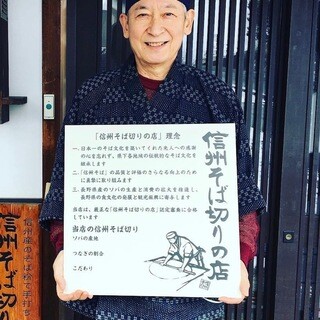 「信州そば切りの店」理念
一、日本一のそば文化を築いてくれた先人への感謝
の心を忘れず、県下各地域の伝統的なそば文化を
継承します
二、「信州そば」の品質と評価のさらなる向上のため
に真摯に取り組みます
三、長野県産のソバの生産と消費の拡大を推進し、
長野県の食文化の発展と観光振興に寄与します
当店は、厳正な「信州そば切りの店」認定審査に合格
しています
当店の信州そば切り
ソバの産地
つなぎの割合
こだわり
信州そば切りの店
信州そば切り